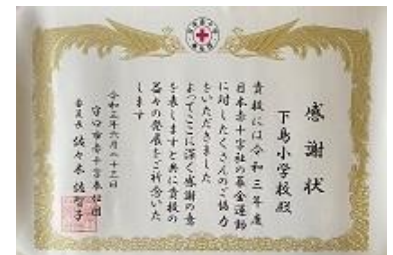 感謝状
下島小学校殿
貴校には令和三年度
日本赤十字社の募金運動
に対したくさんのご協力
をいただきました
よってここに深く感謝の意
を表しますと共に貴校の
益々の発展をご祈念いた
します
令和三年六月二十三日
守口市赤十字奉仕団
委員長 佐々木佐智子